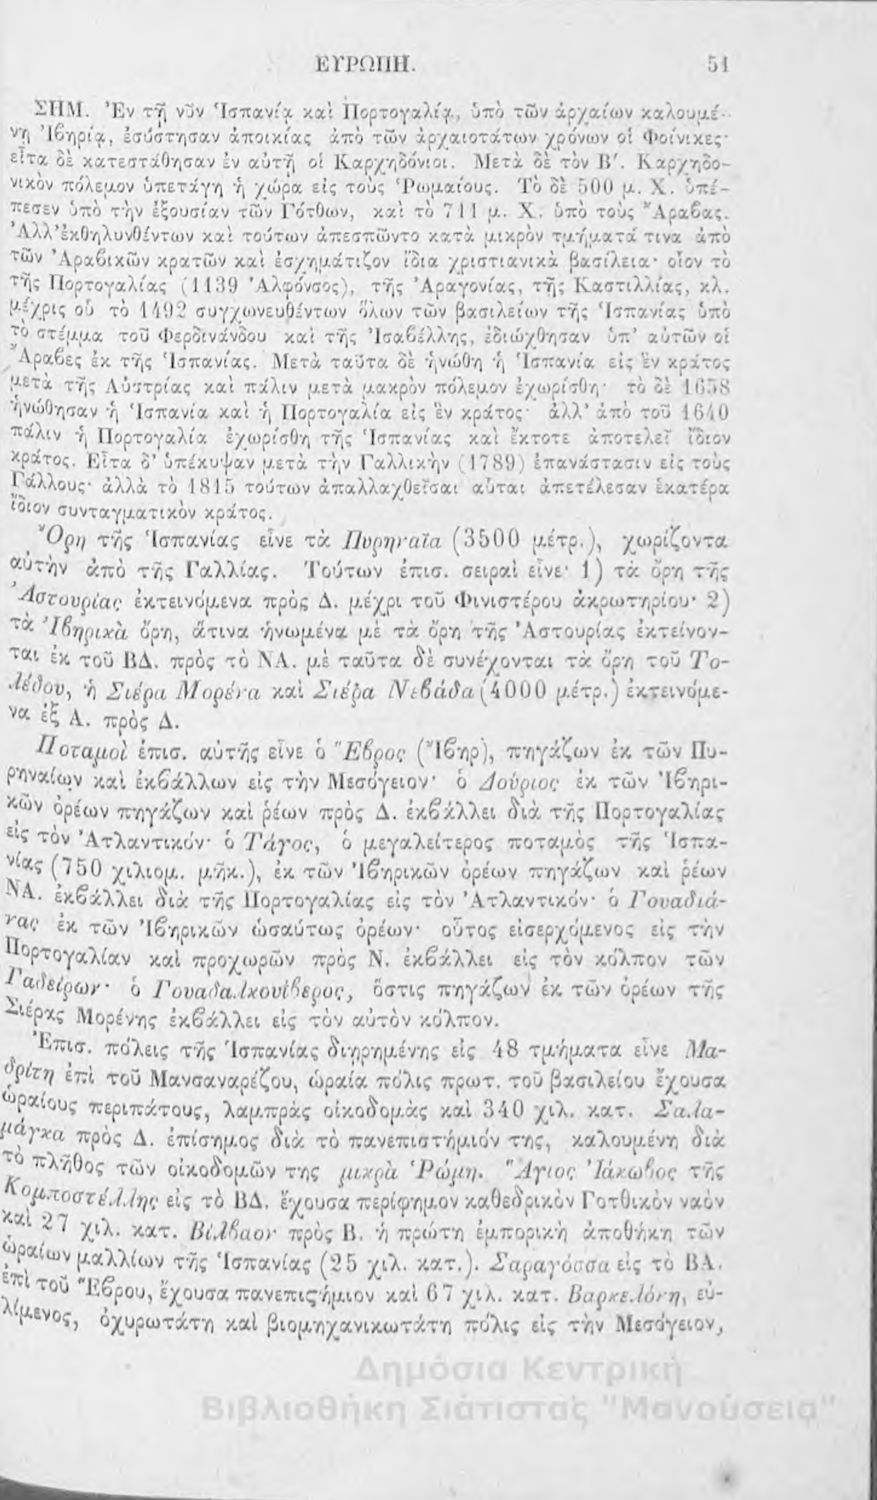 ΕΥΡΩΠΗ. 51
ΣΗΜ. Ἐν τῇ νῦν Ἱσπανίᾳ καὶ Πορτογαλίᾳ, ὑπὸ τῶν ἀρχαίων καλουμέ-
νῃ Ἰβηρίᾳ, ἐσύστησαν ἀποικίας ἀπὸ τῶν ἀρχαιοτάτων χρόνων οἱ Φοίνικες·
εἶτα δὲ κατεστάθησαν ἐν αὐτῇ οἱ Καρχηδόνιοι. Μετὰ δὲ τὸν Β′. Καρχηδο-
νικὸν πόλεμον ὑπετάγη ἡ χώρα εἰς τοὺς Ῥωμαίους. Τὸ δὲ 500 μ. Χ. ὑπέ-
πεσεν ὑπὸ τὴν ἐξουσίαν τῶν Γότθων, καὶ τὸ 711 μ. Χ. ὑπὸ τοὺς Ἄραβας.
Ἀλλ' ἐκθηλυνθέντων καὶ τούτων ἀπεσπῶντο κατὰ μικρὸν τμήματά τινα ἀπὸ
τῶν Ἀραβικῶν κρατῶν καὶ ἐσχημάτιζον ἴδια χριστιανικὰ βασίλεια· οἷον τὸ
τῆς Πορτογαλίας (1139 Ἀλφόνσος), τῆς Ἀραγονίας, τῆς Καστιλλίας, κλ.
μέχρις οὗ τὸ 1492 συγχωνευθέντων ὅλων τῶν βασιλείων τῆς Ἱσπανίας ὑπὸ
τὸ στέμμα τοῦ Φερδινάνδου καὶ τῆς Ἰσαβέλλης, ἐδιώχθησαν ὑπ' αὐτῶν οἱ
Ἄραβες ἐκ τῆς Ἱσπανίας. Μετὰ ταῦτα δὲ ἡνώθη ἡ Ἱσπανία εἰς ἓν κράτος
μετὰ τῆς Αὐστρίας καὶ πάλιν μετὰ μακρὸν πόλεμον ἐχωρίσθη· τὸ δὲ 1658
ἡνώθησαν ἡ Ἱσπανία καὶ ἡ Πορτογαλία εἰς ἓν κράτος· ἀλλ' ἀπὸ τοῦ 1640
πάλιν ἡ Πορτογαλία ἐχωρίσθη τῆς Ἱσπανίας καὶ ἔκτοτε ἀποτελεῖ ἴδιον
κράτος. Εἶτα δ' ὑπέκυψαν μετὰ τὴν Γαλλικὴν (1789) ἐπανάστασιν εἰς τοὺς
Γάλλους· ἀλλὰ τὸ 1815 τούτων ἀπαλλαχθεῖσαι αὗται ἀπετέλεσαν ἑκατέρα
ἴδιον συνταγματικὸν κράτος.
Ὄρη τῆς Ἱσπανίας εἶνε τὰ Πυρηναῖα (3500 μέτρ.), χωρίζοντα
αὐτὴν ἀπὸ τῆς Γαλλίας. Τούτων ἐπισ. σειραὶ εἶνε· 1) τὰ ὄρη τῆς
Ἀστουρίας ἐκτεινόμενα πρὸς Δ. μέχρι τοῦ Φινιστέρου ἀκρωτηρίου· 2)
τὰ Ἰβηρικὰ ὄρη, ἅτινα ἡνωμένα μὲ τὰ ὄρη τῆς Ἀστουρίας ἐκτείνον-
ται ἐκ τοῦ ΒΔ. πρὸς τὸ ΝΑ. μὲ ταῦτα δὲ συνέχονται τὰ ὄρη τοῦ Το-
λέδου, ἡ Σιέρα Μορένα καὶ Σιέρα Νεβάδα (4000 μέτρ.) ἐκτεινόμε-
να ἐξ Α. πρὸς Δ.
Ποταμοὶ ἐπισ. αὐτῆς εἶνε ὁ Ἔβρος (Ἴβηρ), πηγάζων ἐκ τῶν Πυ-
ρηναίων καὶ ἐκβάλλων εἰς τὴν Μεσόγειον· ὁ Δούριος ἐκ τῶν Ἰβηρι-
κῶν ὀρέων πηγάζων καὶ ῥέων πρὸς Δ. ἐκβάλλει διὰ τῆς Πορτογαλίας
εἰς τὸν Ἀτλαντικόν· ὁ Τάγος, ὁ μεγαλείτερος ποταμὸς τῆς Ἱσπα-
νίας (750 χιλιομ. μῆκ.), ἐκ τῶν Ἰβηρικῶν ὀρέων πηγάζων καὶ ῥέων
ΝΑ. ἐκβάλλει διὰ τῆς Πορτογαλίας εἰς τὸν Ἀτλαντικόν· ὁ Γουαδιά-
νας ἐκ τῶν Ἰβηρικῶν ὡσαύτως ὀρέων· οὗτος εἰσερχόμενος εἰς τὴν
Πορτογαλίαν καὶ προχωρῶν πρὸς Ν. ἐκβάλλει εἰς τὸν κόλπον τῶν
Γαδείρων· ὁ Γουαδαλκουίβερος, ὅστις πηγάζων ἐκ τῶν ὀρέων τῆς
Σιέρας Μορένης ἐκβάλλει εἰς τὸν αὐτὸν κόλπον.
Ἐπισ. πόλεις τῆς Ἱσπανίας διῃρημένης εἰς 48 τμήματα εἶνε Μα-
δρίτη ἐπὶ τοῦ Μανσαναρέζου, ὡραία πόλις πρωτ. τοῦ βασιλείου ἔχουσα
ὡραίους περιπάτους, λαμπρὰς οἰκοδομὰς καὶ 340 χιλ. κατ. Σαλα-
μάγκα πρὸς Δ. ἐπίσημος διὰ τὸ πανεπιστήμιόν της, καλουμένη διὰ
τὸ πλῆθος τῶν οἰκοδομῶν της μικρὰ Ῥώμη. Ἅγιος Ἰάκωβος τῆς
Κομποστέλλης εἰς τὸ ΒΔ. ἔχουσα περίφημον καθεδρικὸν Γοτθικὸν ναὸν
καὶ 27 χιλ. κατ. Βίλβαον πρὸς Β. ἡ πρώτη ἐμπορικὴ ἀποθήκη τῶν
ὡραίων μαλλίων τῆς Ἱσπανίας (25 χιλ. κατ.). Σαραγόσσα εἰς τὸ ΒΑ.
ἐπὶ τοῦ Ἔβρου, ἔχουσα πανεπιςήμιον καὶ 67 χιλ. κατ. Βαρκελόνη, εὐ-
λίμενος, ὀχυρωτάτη καὶ βιομηχανικωτάτη πόλις εἰς τὴν Μεσόγειον,
Δημόσια Κεντρική
Βιβλιοθήκη Σιάτιστας "Μανούσεια"